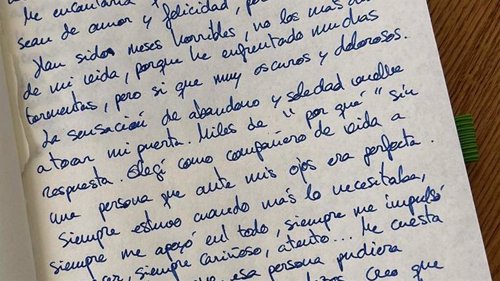 Me encantaría
sean de amor y felicidad,
Han sido meses horribles, no los más
de mi vida, porque he enfrentado muchas
tormentas, pero si que muy oscuros y dolorosos.
La sensación de abandono y soledad vuelve
a tocar mi puerta. Miles de "por qué" sin
respuesta. Elegí como compañero de vida a
una persona que ante mis ojos era perfecta.
Siempre estuvo cuando más lo necesitaba,
siempre me apoyó en todo, siempre me impulsó
siempre cariñoso, atento... Me cuesta
esa persona pudiera
Creo que